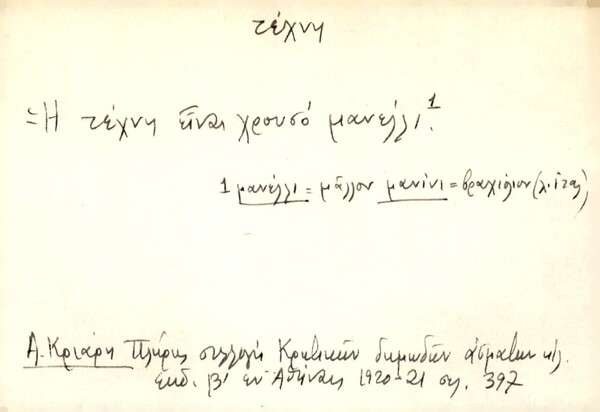 τέχνη
Ἡ τέχνη εἶναι χρουσό μανέλλι¹.
1 μανέλλι = μᾶλλον μανίνι = βραχιόλιον (λ. ἰταλ)
Α. Κριάρη Πλήρης συλλογή Κρητικῶν δημωδῶν ᾀσμάτων κλ.
Ἐκδ. β' ἐν Ἀθήναις 1920-21 σελ. 397